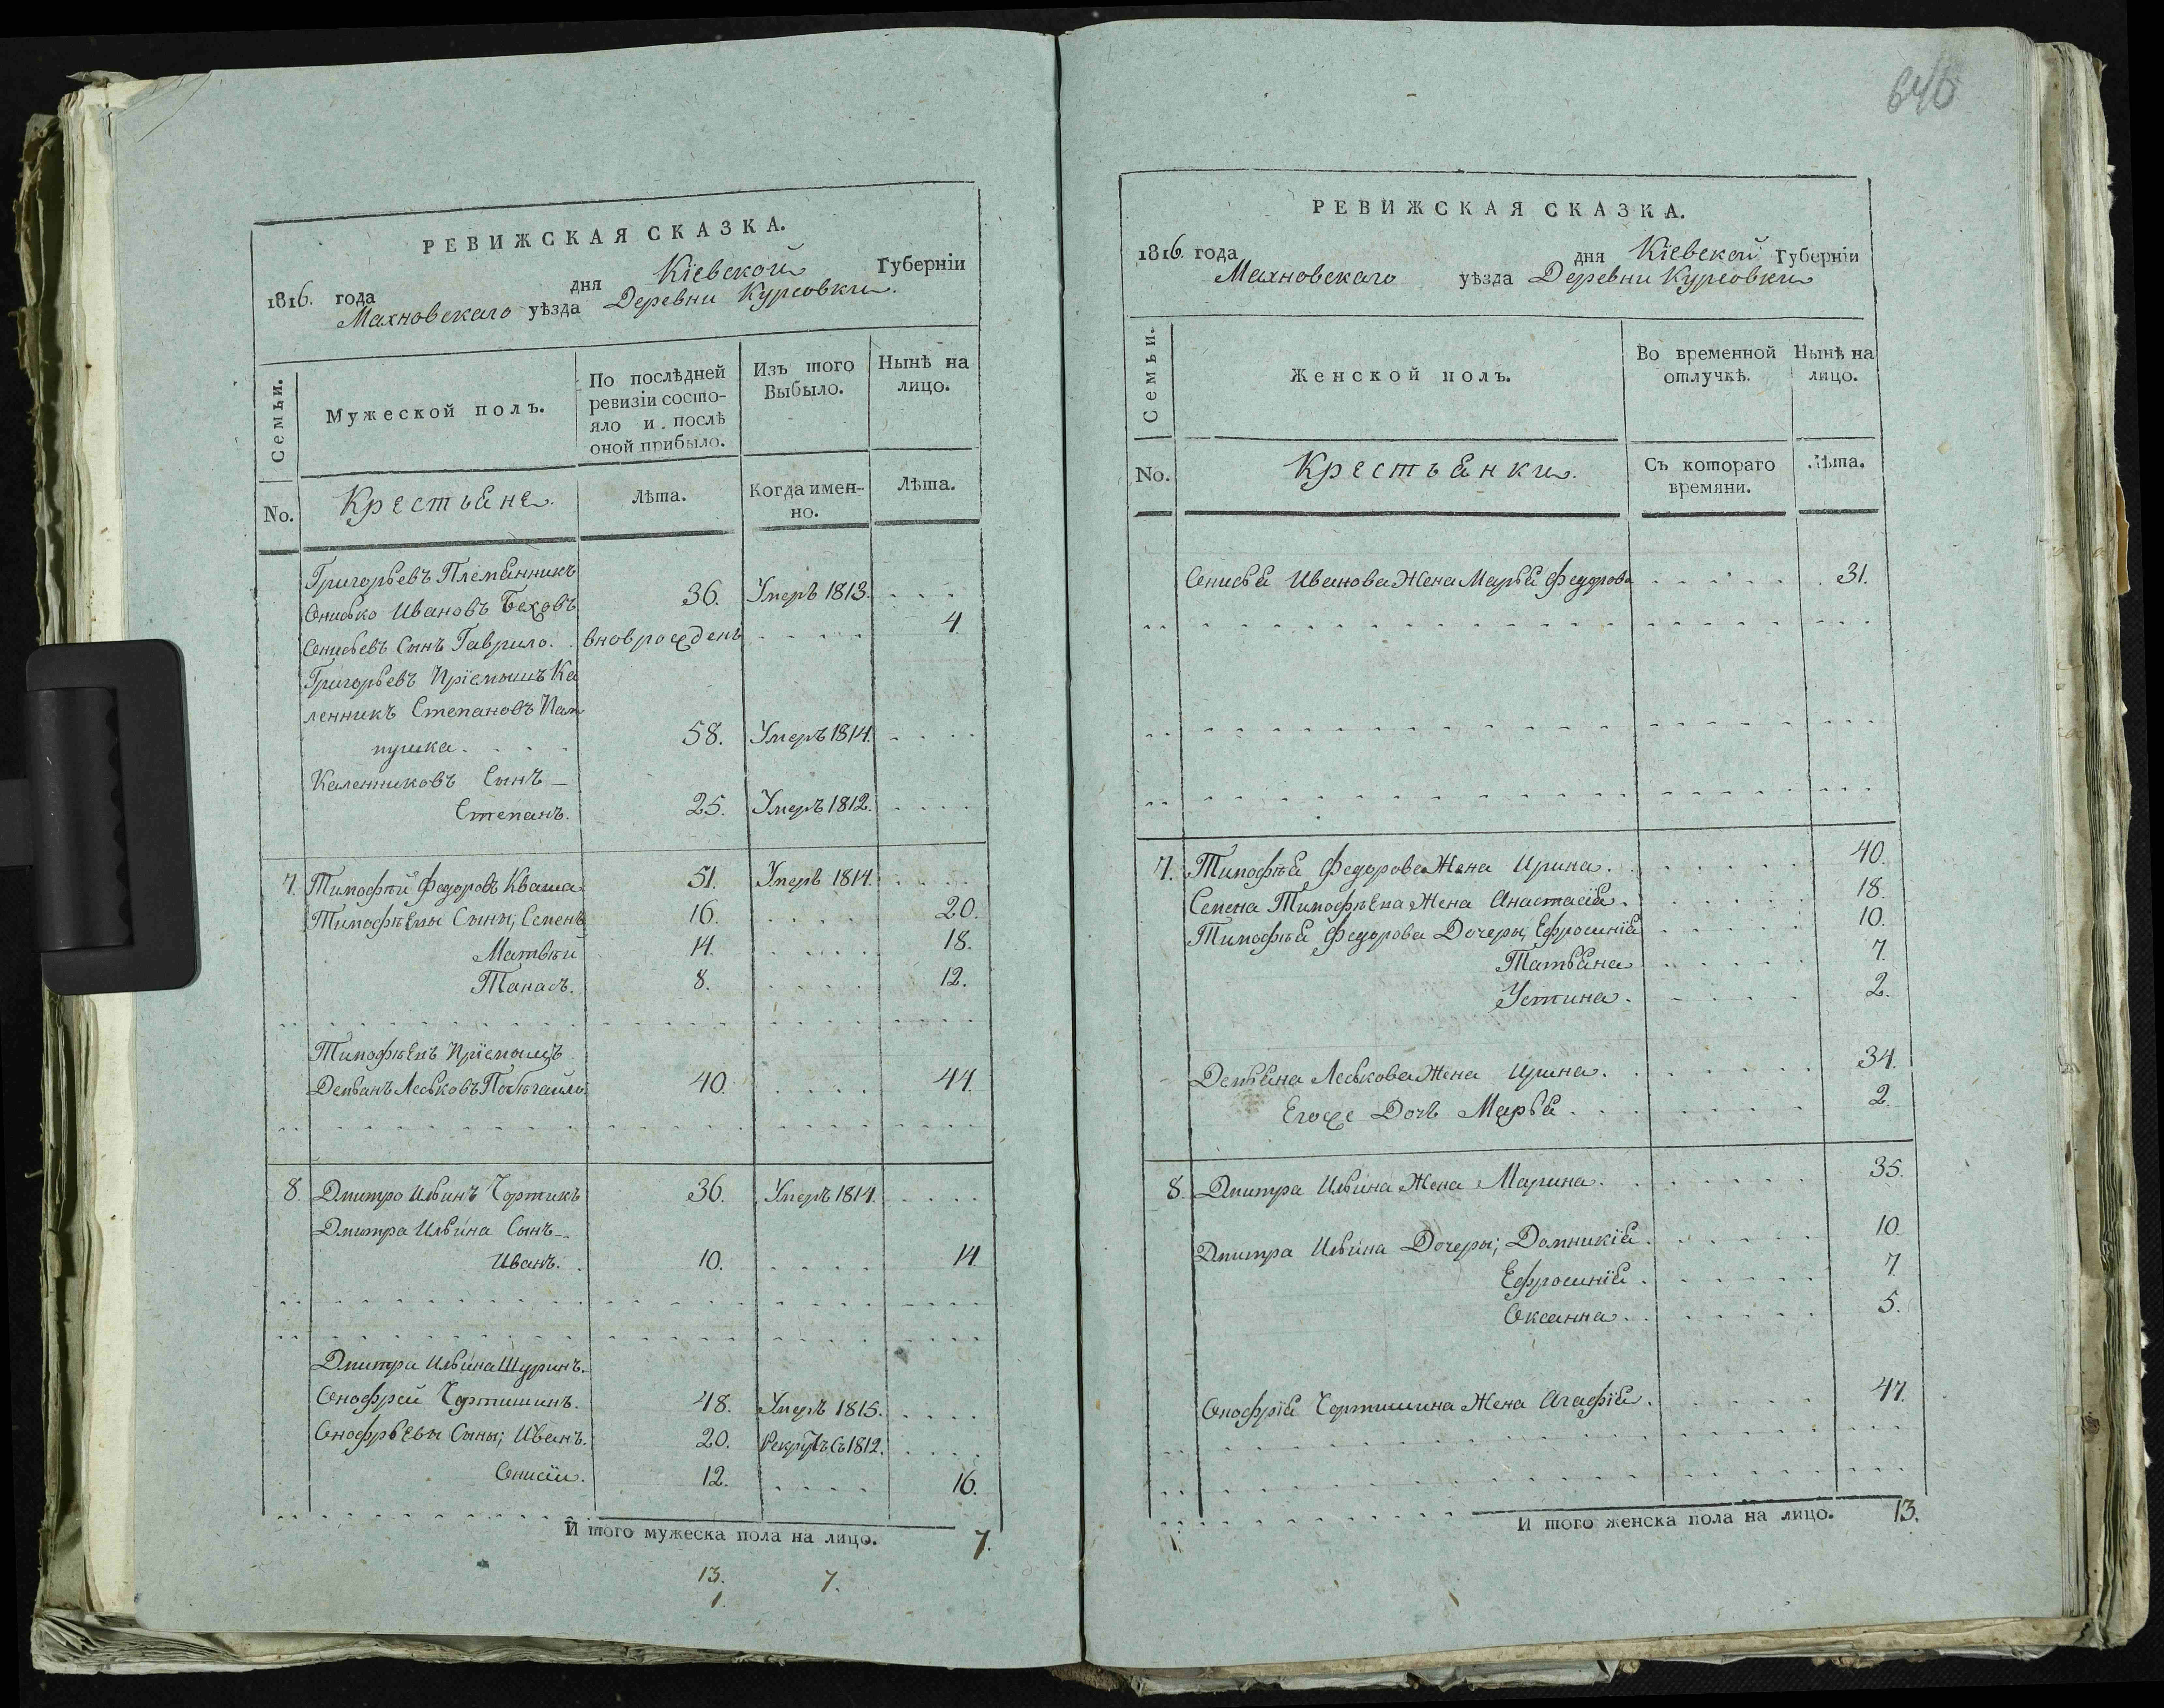 646
РЕВИЖСКАЯ СКАЗКА.
1816. года дня Кіевской Губерніи
Махновскаго уѣзда Деревни Курсовки.
Семьи.
Мужеской полъ.
По послѣдней ревизіи состо-
яло и послѣ
оной прибыло.
Изъ того
Выбыло.
Нынѣ на
лицо.
No.
Крестьяне.
Лѣта.
Когда имен-
но.
Лѣта.
Григорьевъ Племянникъ
Онисько Ивановъ Беховъ 36. Умеръ 1813.
Онисьевъ Сынъ Гаврило. вновърожденъ 4.
Григорьевъ Пріемышъ Ка
ленникъ Степановъ Пам
пушка. 58. Умеръ 1814.
Каленниковъ Сынъ
Степанъ. 25. Умеръ 1812.
7. Тимофѣй Федоровъ Кваша 51. Умеръ 1814.
Тимофѣевы Сыны; Семенъ 16. 20.
Матвѣй 14. 18.
Танасъ. 8. 12.
Тимофѣевъ Пріемышъ
Демьянъ Леськовъ 40. 44.
8. Дмитро Ильинъ Чортикъ 36. Умеръ 1814.
Дмитра Ильина Сынъ
Иванъ. 10. 14.
Дмитра Ильина Шуринъ.
Онофрей Чортишинъ. 48. Умеръ 1815.
Онофрьевы Сыны; Иванъ. 20. Рекрутъ съ 1812.
Онисій. 12. 16.
И того мужеска пола на лицо. 7.
13. 7.
РЕВИЖСКАЯ СКАЗКА.
1816. года дня Кіевской Губерніи
Махновскаго уѣзда Деревни Курсовки
Семьи.
Женской полъ.
Во временной
отлучкѣ.
Нынѣ на
лицо.
No.
Крестьянки.
Съ котораго
времяни.
Лѣта.
Онисья Иванова Жена Марья Федорова 31.
7. Тимофѣя Федорова Жена Ирина. 40.
Семена Тимофѣева Жена Анастасія. 18.
Тимофѣя Федорова Дочеры; Ефросинія 10.
Татьяна 7.
Устина. 2.
Демьяна Леськова Жена Ирина. 34.
Егоже Дочь Марья. 2.
8. Дмитра Ильина Жена Марина. 35.
Дмитра Ильина Дочеры; Домникія. 10.
Ефросинія. 7.
Оксанна. 5.
Онофрія Чортишина Жена Агафія. 47.
И того женска пола на лицо. 13.